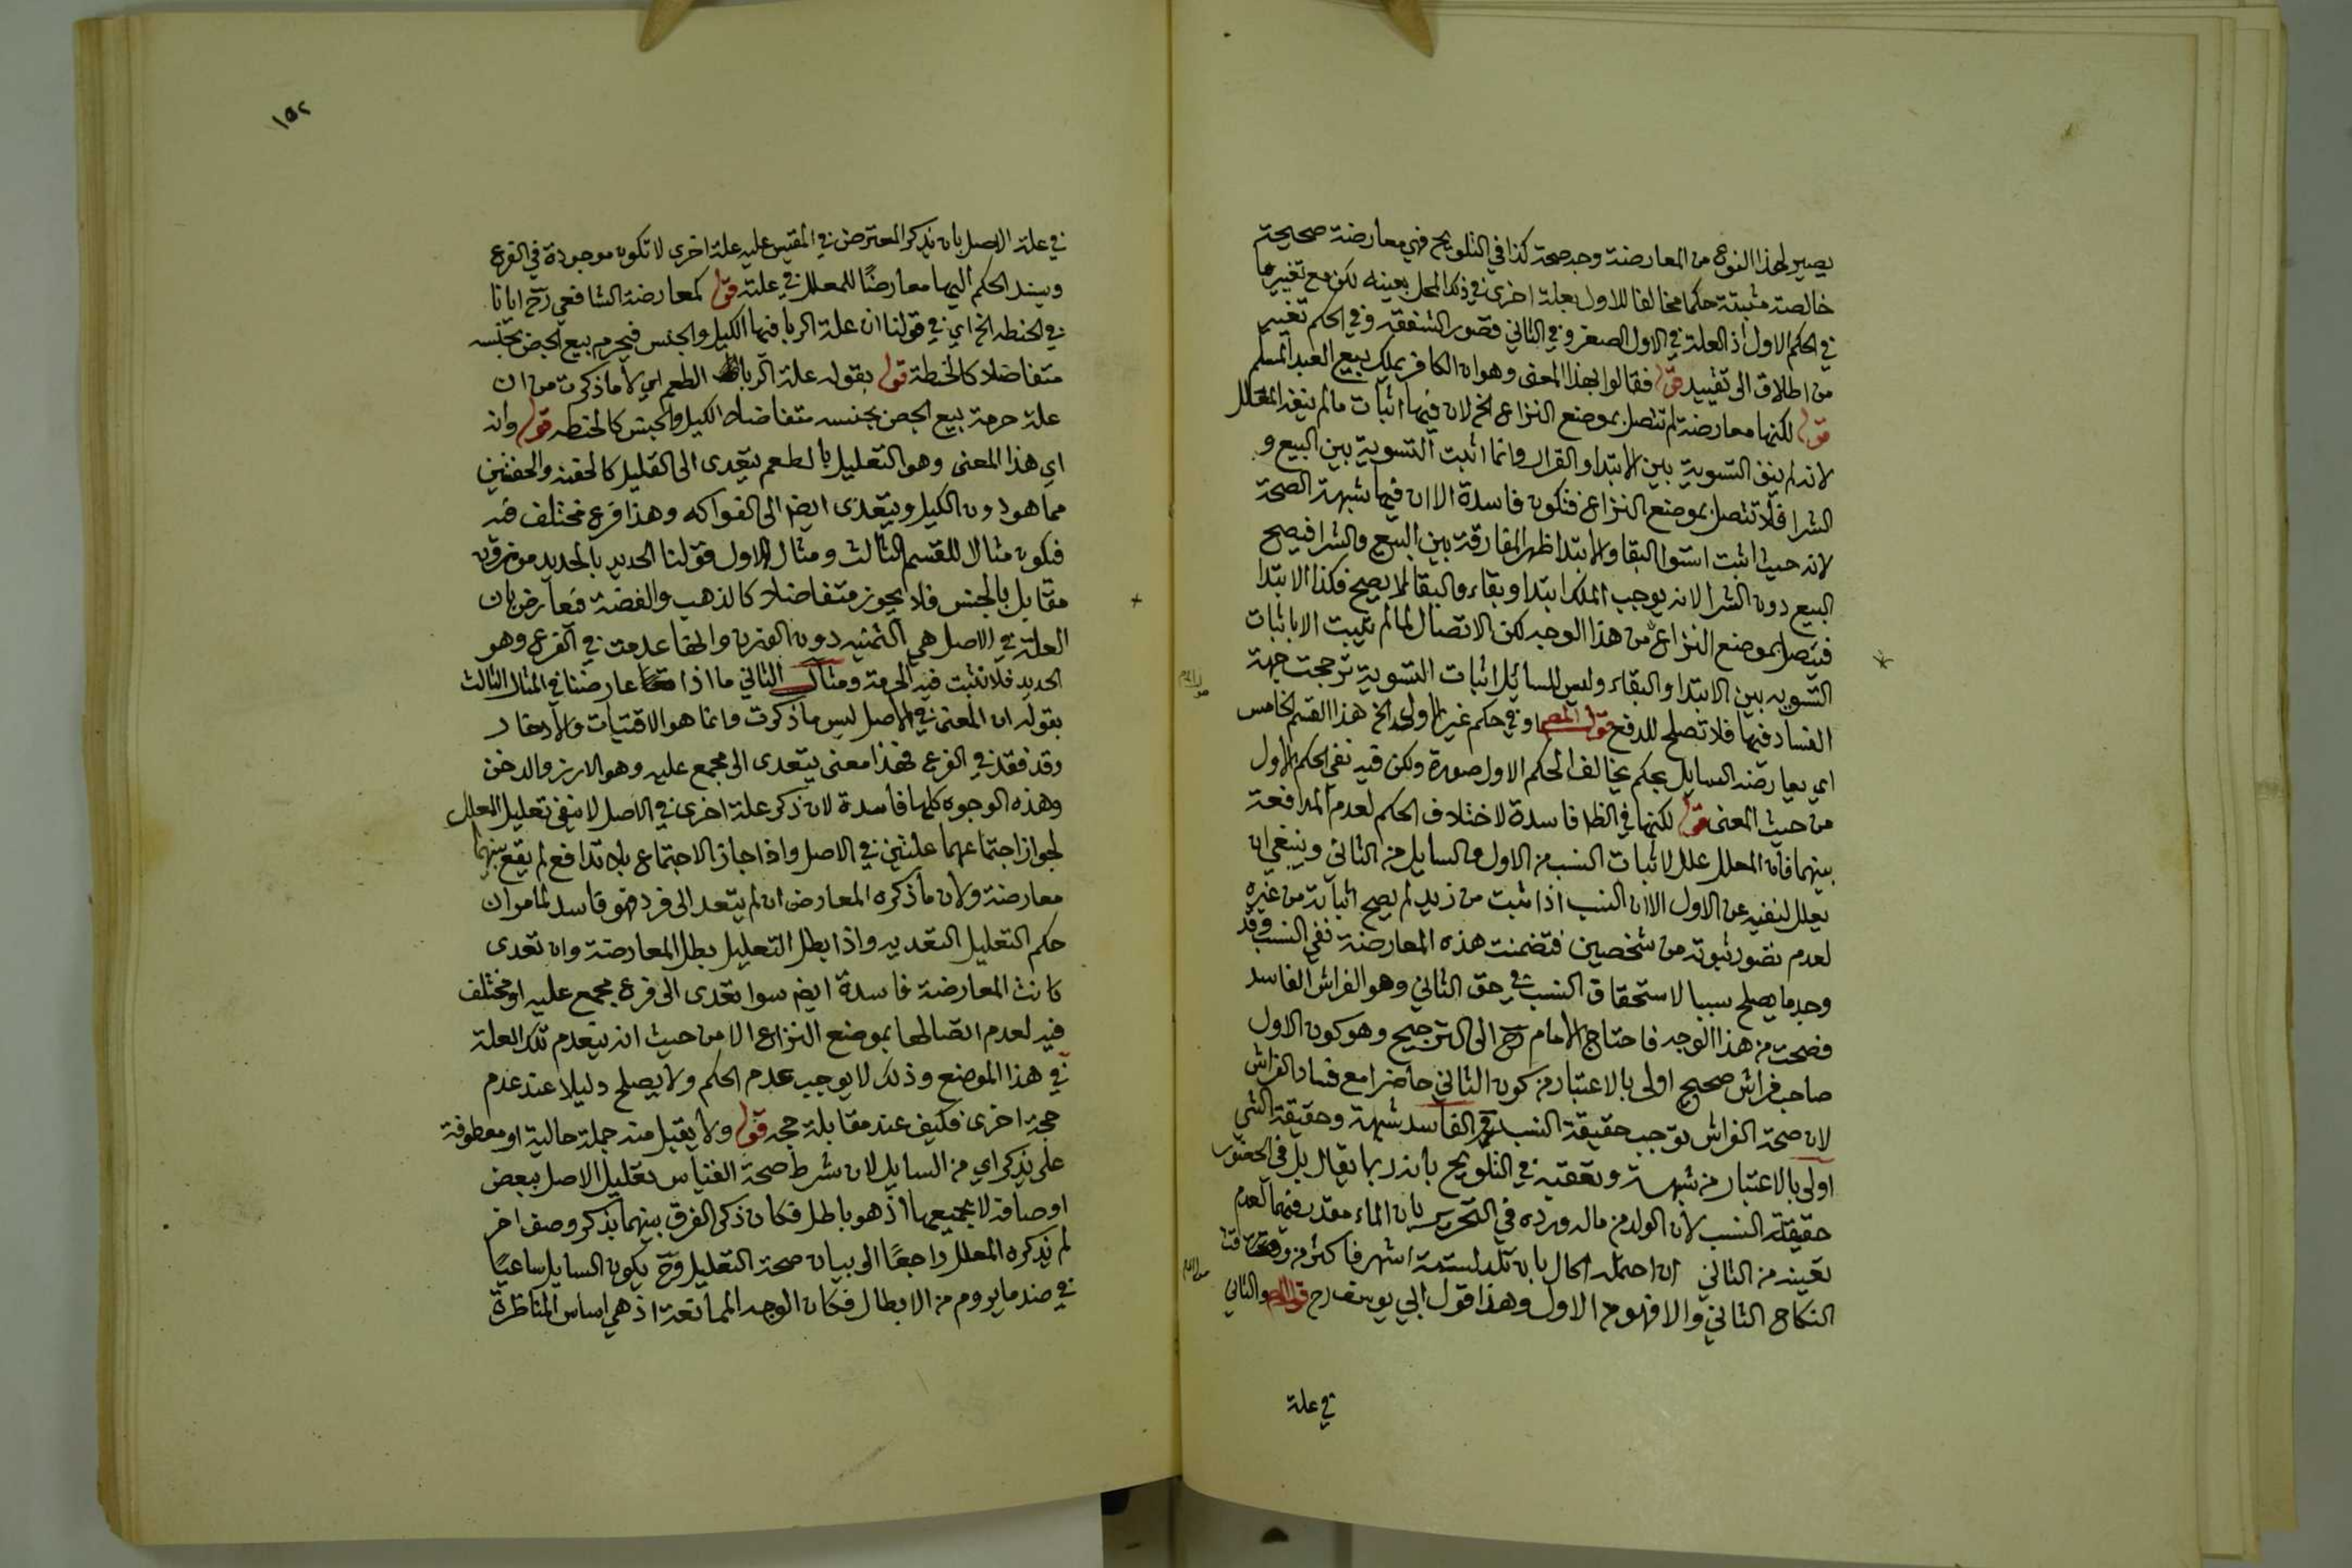 يصير لهذا النوع من المعارضة وجه صحة كذا في التلويح فهي معارضة صحيحة
خالصة مثبتة حكما مخالفا للاول بعلة اخرى في ذلك المحل بعينه لكن مع تغيير ما
في الحكم الاول اذ العلة في الاول الصغر وفي الثاني قصور الشفقة وفي الحكم تغيير
من اطلاق الى تقييد قوله فقالوا بهذا المعنى وهو ان الكافر يملك بيع العبد المسلم
قوله لكنها معارضة لم تتصل بموضع النزاع الخ لان فيها اثبات ما لم ينفه المعلل
لانه لم ينف التسوية بين الابتدا والقرار وانما اثبت التسوية بين البيع و
الشرا فلا تتصل بموضع النزاع فتكون فاسدة الا ان فيها شبهة الصحة
لانه حيث اثبت استوا البقا والابتدا ظهر المفارقة بين البيع والشرا فيصح
البيع دون الشرا لانه يوجب الملك ابتدا وبقاء والبقا لا يصح فكذا الابتدا
فيتصل بموضع النزاع من هذا الوجه لكن الاتصال لما لم يثبت الا باثبات
التسويه بين الابتدا والبقاء وليس للسايل اثبات التسوية ترجحت جهة
الفساد فيها فلا تصلح للدفع قول المص او في حكم غير الاول الخ هذا القسم الخامس
اي يعارضه السايل بحكم يخالف الحكم الاول صورة ولكن فيه نفي الحكم الاول
من حيث المعنى قوله لكنها في الظ فاسدة لاختلاف الحكم لعدم المدافعة
بينهما فان المعلل علل لاثبات النسب من الاول والسايل من الثاني وينبغي ان
يعلل لنفيه عن الاول الا ان النسب اذا ثبت من زيد لم يصح اثباته من غيره
لعدم تصور ثبوته من شخصين فتضمنت هذه المعارضة نفي النسب وقد
وجد ما يصلح سببا لاستحقاق النسب في حق الثاني وهو الفراش الفاسد
فصحت من هذا الوجه فاحتاج الامام رح الى الترجيح وهو كون الاول
صاحب فراش صحيح اولى بالاعتبار من كون الثاني حاضرا مع فساد الفراش
لان صحة الفراش توجب حقيقة النسب والفاسد شبهة وحقيقة الشي
اولى بالاعتبار من شبهته وتعقبه في التلويح بانه ربما يقال بل في الحضور
حقيقة النسب لان الولد من مائه ورده في التحرير بان الماء مقدر فيهما لعدم
تعينه من الثاني ان احتمله الحال بان تلد لستة اشهر فاكثر من وقت
النكاح الثاني والا فهو من الاول وهذا قول ابي يوسف رح قوله والثاني
في علة
١٥٢
في علة الاصل بان يذكر المعترض في المقيس عليه علة اخرى لا تكون موجودة في الفرع
ويسند الحكم اليها معارضًا للمعلل في علته قوله كمعارضة الشافعي رح ايانا
في الحنطه الخ اي في قولنا ان علة الربا فيها الكيل والجنس فيحرم بيع الجص بجنسه
متفاضلا كالحنطة قوله بقوله علة الربا الطعم اي لا ما ذكرت من ان
علة حرمة بيع الجص بجنسه متفاضلا الكيل والجنس كالحنطه قوله وانه
اي هذا المعنى وهو التعليل بالطعم يتعدى الى القليل كالحفنه والحفنتين
مما هو دون الكيل ويتعدى ايضا الى الفواكه وهذا فرع مختلف فيه
فيكون مثالا للقسم الثالث ومثال الاول قولنا الحديد بالحديد موزون
مقابل بالجنس فلا يجوز متفاضلا كالذهب والفضة فيعارض بان
العلة في الاصل هي الثمنيه دون الوزن وانها عدمت في الفرع وهو
الحديد فلا تثبت فيه الحرمة ومثال الثاني ما اذا عارضنا في المثال الثالث
بقوله ان المعنى في الاصل ليس ما ذكرت وانما هو الاقتيات والادخار
وقد فقد في الفرع فهذا معنى يتعدى الى مجمع عليه وهو الارز والدخن
وهذه الوجوه كلها فاسدة لان ذكر علة اخرى في الاصل لا ينفي تعليل المعلل
لجواز اجتماعهما علتين في الاصل واذا جاز الاجتماع بلا تدافع لم يقع بينهما
معارضة ولان ما ذكره المعارض ان لم يتعد الى فرد فهو فاسد لما مر ان
حكم التعليل التعديه واذا بطل التعليل بطل المعارضة وان تعدى
كانت المعارضة فاسدة ايضا سوا تعدى الى فرع مجمع عليه او مختلف
فيه لعدم اتصالها بموضع النزاع الا من حيث انه ينعدم تلك العلة
في هذا الموضع وذلك لا يوجب عدم الحكم ولا يصلح دليلا عند عدم
حجة اخرى فكيف عند مقابلة حجه قوله ولا يقبل منه جملة حالية او معطوفة
على يذكر اي من السايل لان شرط صحة القياس تعليل الاصل ببعض
اوصافه لا بجميعها اذ هو باطل فكان ذكر الفرق بينهما بذكر وصف اخر
لم يذكره المعلل راجعًا الى بيان صحة التعليل وح يكون السايل ساعيًا
في ضد ما يروم من الابطال فكان الوجه الممانعة اذ هي اساس المناظرة